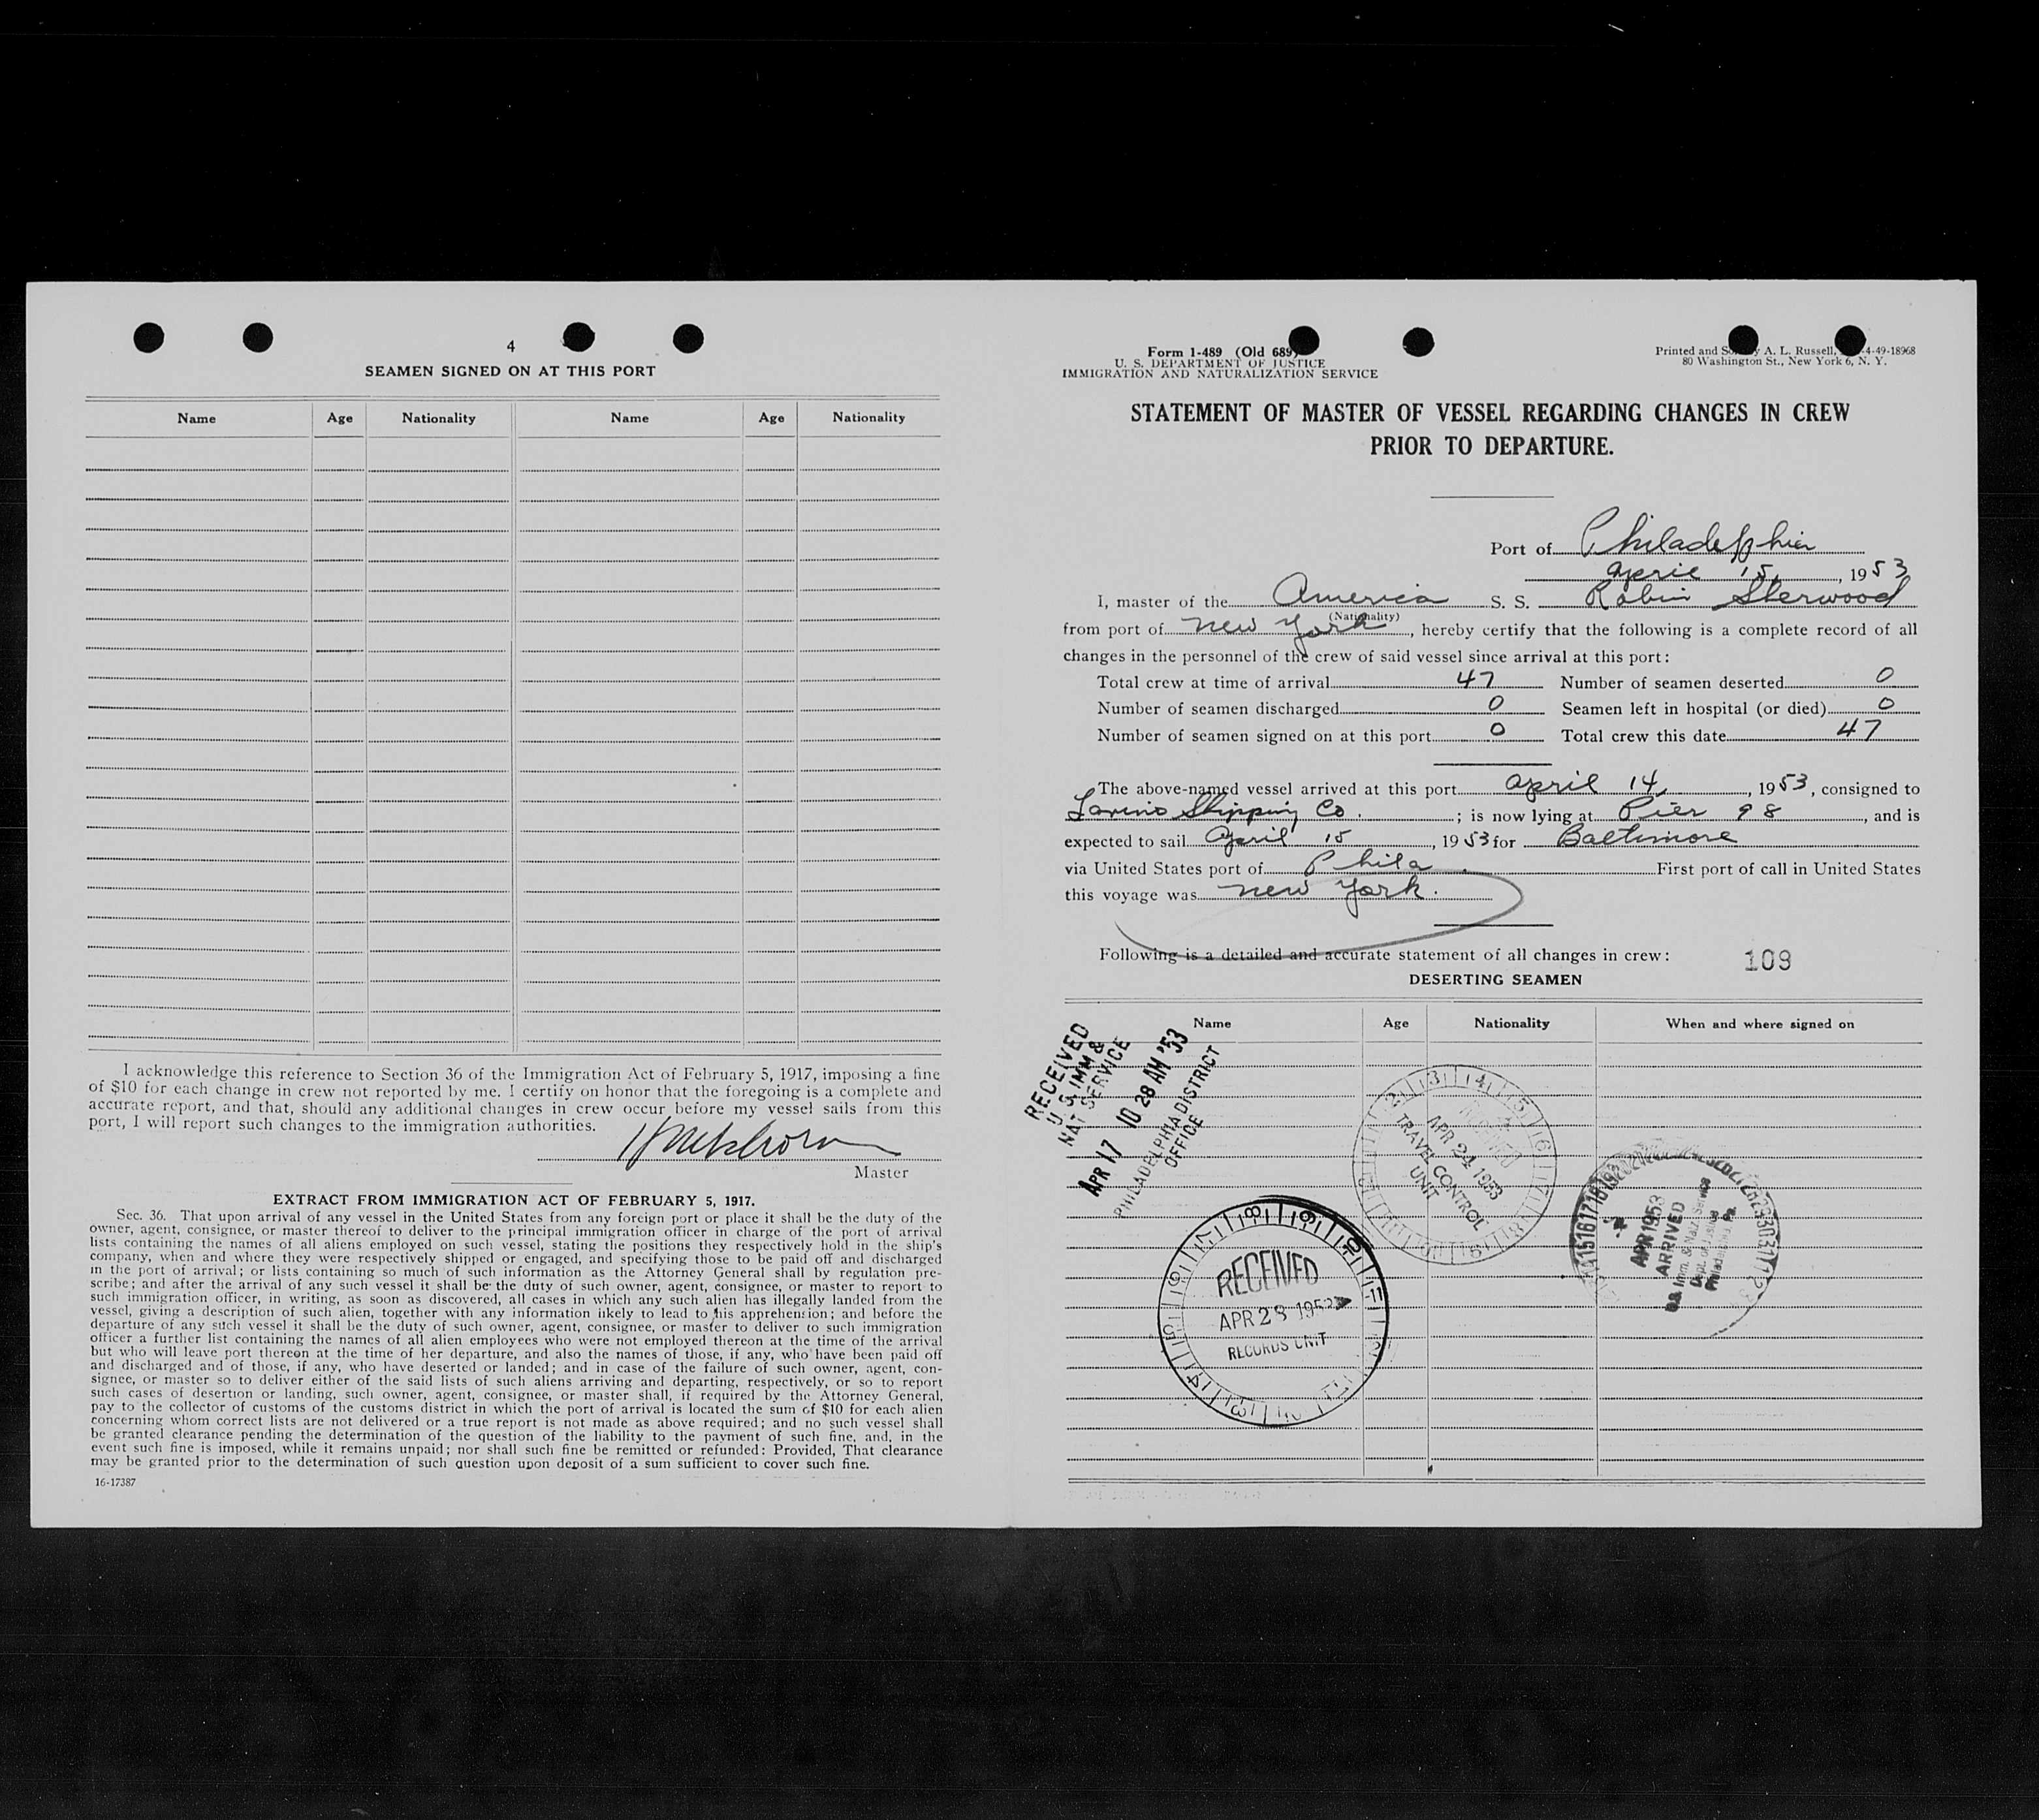 4
SEAMEN SIGNED ON AT THIS PORT
Name Age Nationality Name Age Nationality
I acknowledge this reference to Section 36 of the Immigration Act of February 5, 1917, imposing a fine
of $10 for each change in crew not reported by me. I certify on honor that the foregoing is a complete and
accurate report, and that, should any additional changes in crew occur before my vessel sails from this
port, I will report such changes to the immigration authorities.
Master
EXTRACT FROM IMMIGRATION ACT OF FEBRUARY 5, 1917.
Sec. 36. That upon arrival of any vessel in the United States from any foreign port or place it shall be the duty of the
owner, agent, consignee, or master thereof to deliver to the principal immigration officer in charge of the port of arrival
lists containing the names of all aliens employed on such vessel, stating the positions they respectively hold in the ship's
company, when and where they were respectively shipped or engaged, and specifying those to be paid off and discharged
in the port of arrival; or lists containing so much of such information as the Attorney General shall by regulation pre-
scribe; and after the arrival of any such vessel it shall be the duty of such owner, agent, consignee, or master to report to
such immigration officer, in writing, as soon as discovered, all cases in which any such alien has illegally landed from the
vessel, giving a description of such alien, together with any information likely to lead to his apprehension; and before the
departure of any such vessel it shall be the duty of such owner, agent, consignee, or master to deliver to such immigration
officer a further list containing the names of all alien employees who were not employed thereon at the time of the arrival
but who will leave port thereon at the time of her departure, and also the names of those, if any, who have been paid off
and discharged and of those, if any, who have deserted or landed; and in case of the failure of such owner, agent, con-
signee, or master so to deliver either of the said lists of such aliens arriving and departing, respectively, or so to report
such cases of desertion or landing, such owner, agent, consignee, or master shall, if required by the Attorney General,
pay to the collector of customs of the customs district in which the port of arrival is located the sum of $10 for each alien
concerning whom correct lists are not delivered or a true report is not made as above required; and no such vessel shall
be granted clearance pending the determination of the question of the liability to the payment of such fine, and, in the
event such fine is imposed, while it remains unpaid; nor shall such fine be remitted or refunded: Provided, That clearance
may be granted prior to the determination of such question upon deposit of a sum sufficient to cover such fine.
16-17387
Form 1-489 (Old 689)
U. S. DEPARTMENT OF JUSTICE
IMMIGRATION AND NATURALIZATION SERVICE
Printed and A. L. Russell, 4-49-18968
80 Washington St., New York 6, N. Y.
STATEMENT OF MASTER OF VESSEL REGARDING CHANGES IN CREW
PRIOR TO DEPARTURE.
Port of Philadelphia
April 15, 1953
I, master of the America S. S. Robin Sherwood
(Nationality)
from port of New York, hereby certify that the following is a complete record of all
changes in the personnel of the crew of said vessel since arrival at this port:
Total crew at time of arrival 47 Number of seamen deserted 0
Number of seamen discharged 0 Seamen left in hospital (or died) 0
Number of seamen signed on at this port 0 Total crew this date 47
The above-named vessel arrived at this port April 14, 1953, consigned to
Lavino Shipping Co. ; is now lying at Pier 98, and is
expected to sail April 15, 1953 for Baltimore
via United States port of Phila. First port of call in United States
this voyage was New York.
Following is a detailed and accurate statement of all changes in crew:
109
DESERTING SEAMEN
Name Age Nationality When and where signed on
RECEIVED
U. S. IMM &
NAT SERVICE
APR 17 10 28 AM '53
PHILADELPHIA DISTRICT
OFFICE
APR 24 1953
TRAVEL CONTROL
UNIT
RECEIVED
APR 28 1953
RECORDS UNIT
APR 1953
ARRIVED
U.S. Imm. & Natz. Service
Dept. of Justice
Philadelphia, Pa.